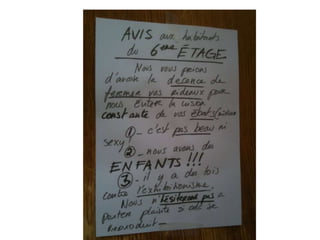 AVIS aux habitants
du 6ème ÉTAGE
Nous vous prions
d'avoir la décence de
fermer vos rideaux pour
nous éviter la vision
constante de vos ébats
① - c'est pas beau ni
sexy!
② - nous avons des
ENFANTS!!!
③ - il y a des lois
contre l'exhibitionisme.
Nous n'hésiterons pas à
porter plainte si cela se
reproduit -